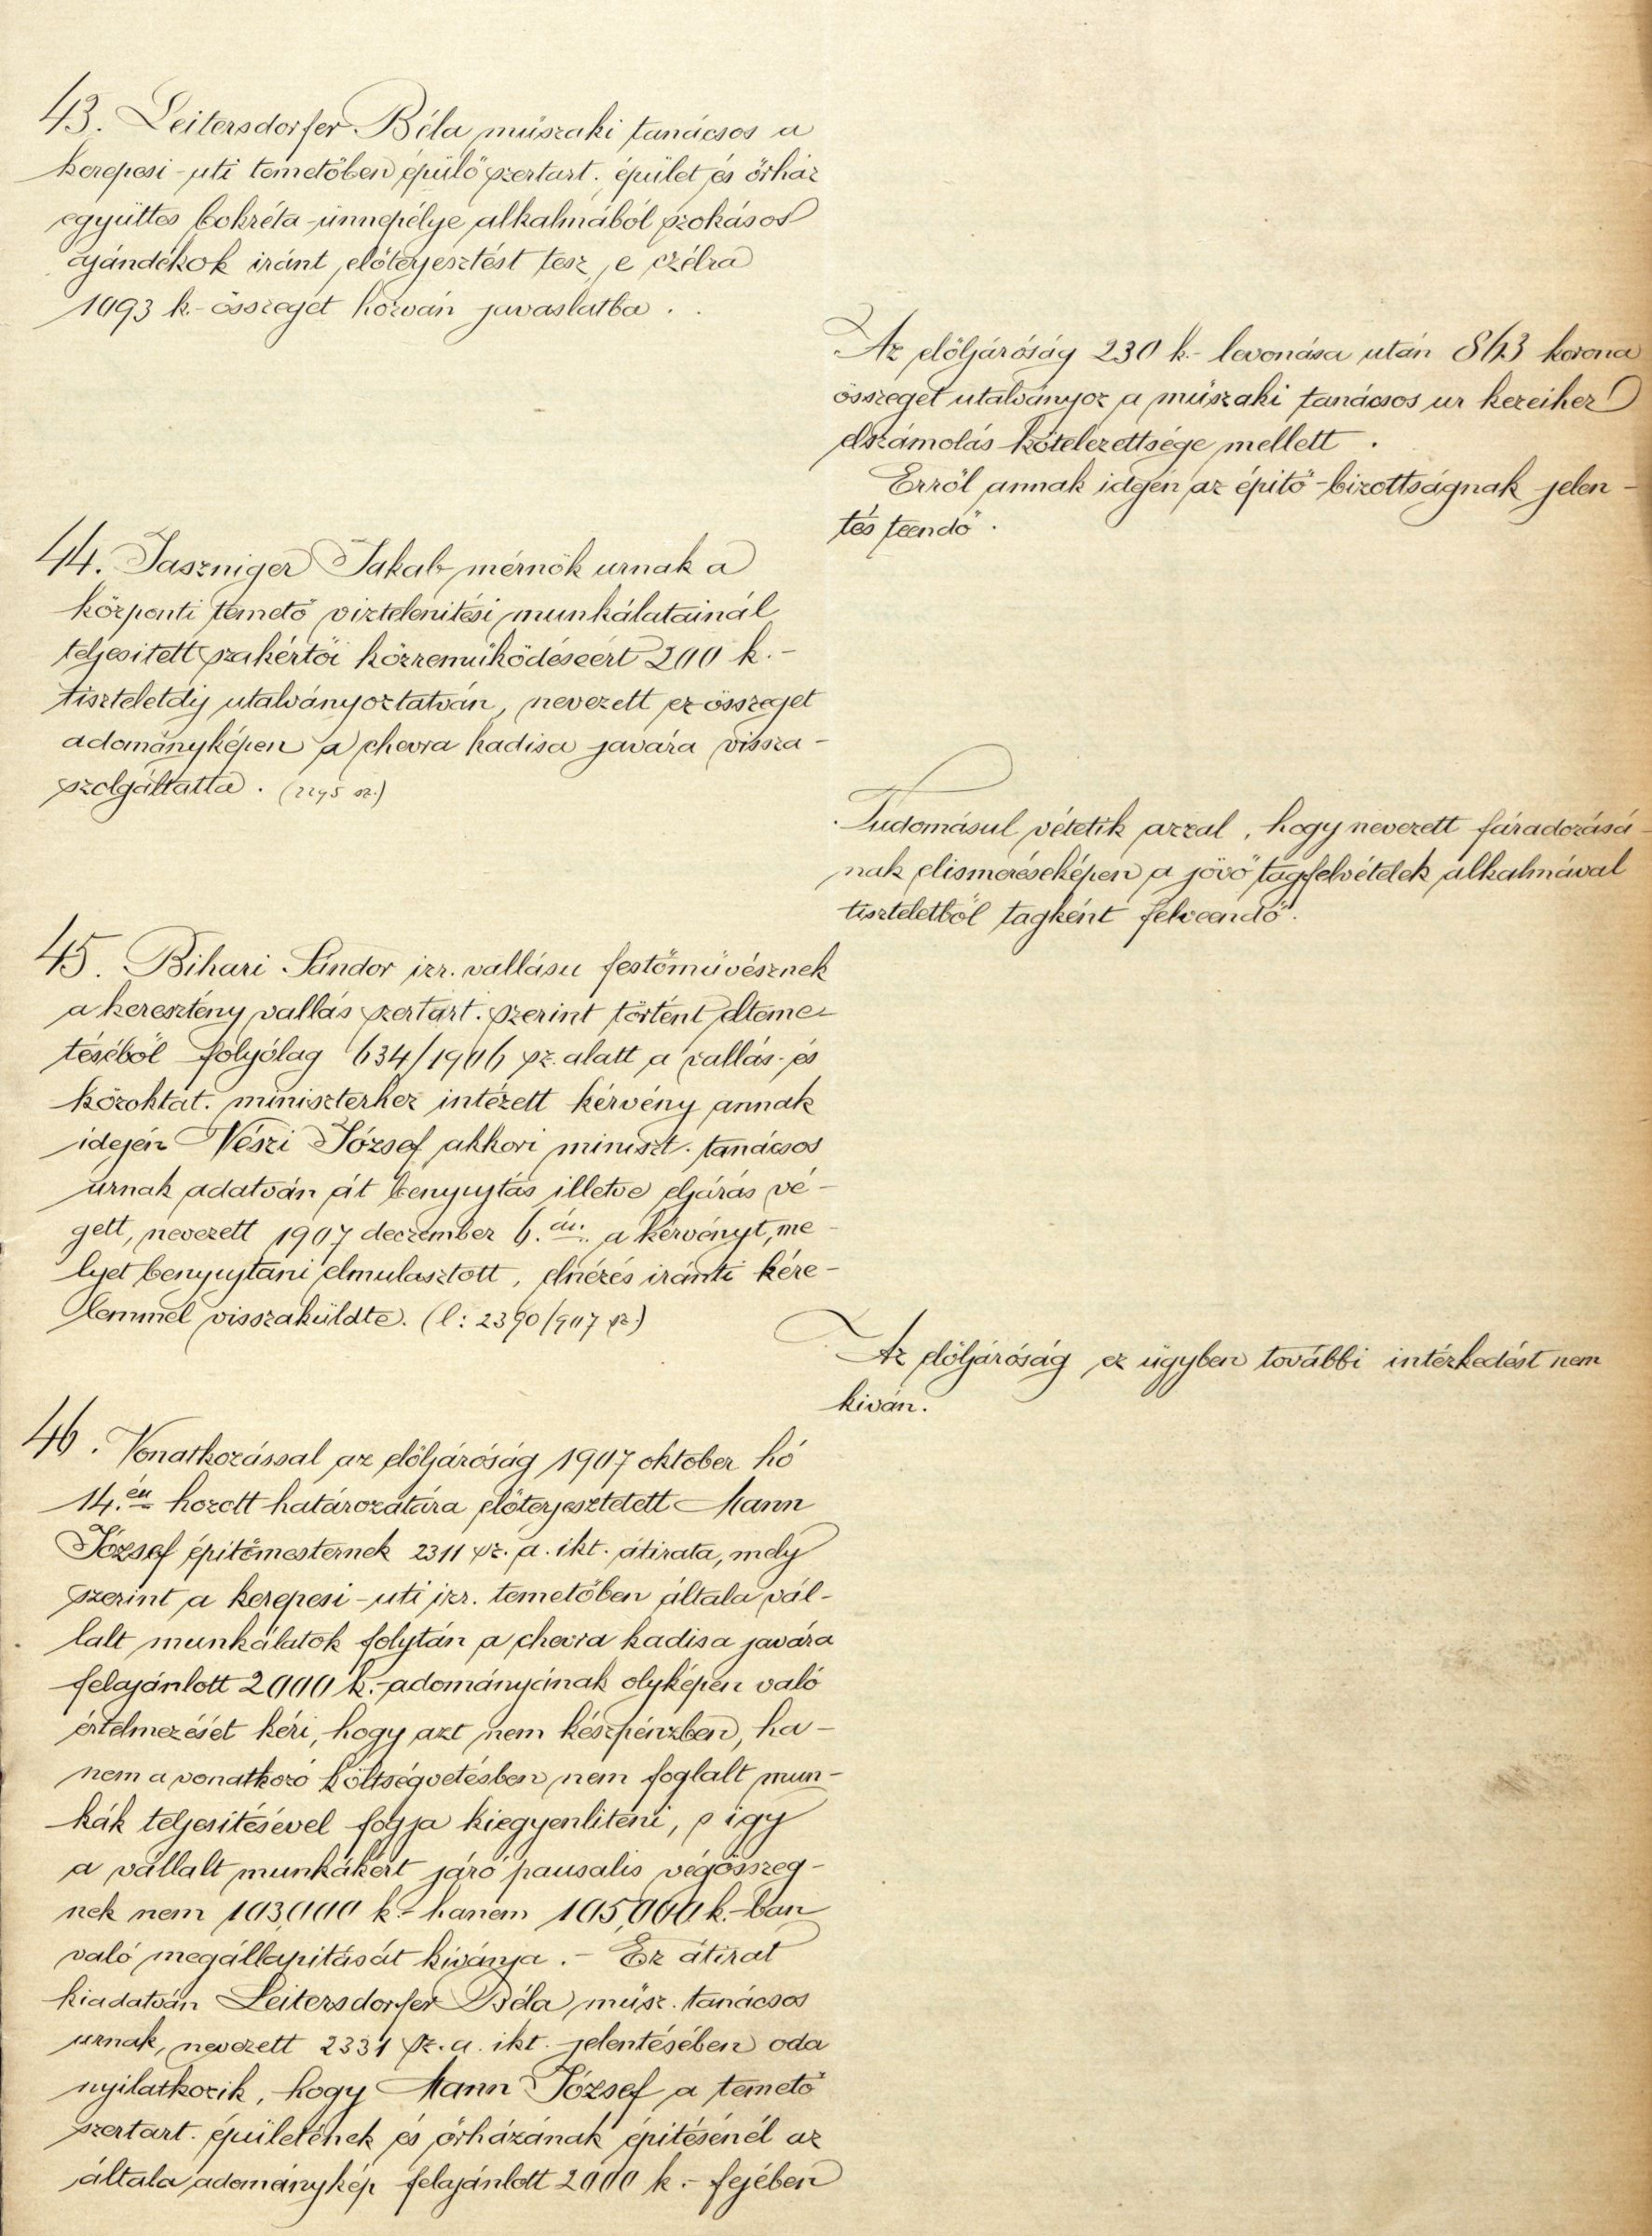 43. Leitersdorfer Béla műszaki tanácsos a
kerepesi-uti temetőben épülő szertart. épület és őrház
együttes bokréta-ünnepélye alkalmából szokásos
ajándékok iránt előterjesztést tesz, e czélra
1093 k.- összeget hozván javaslatba.
Az elöljáróság 230 k.- levonása után 863 korona
összeget utalványoz a műszaki tanácsos ur kezeihez
elszámolás kötelezettsége mellett.
Erről annak idején az épitő-bizottságnak jelen-
tés teendő.
44. Jaszniger Jakab mérnök urnak a
központi temető viztelenitési munkálatainál
teljesitett szakértői közreműködéséért 200 k.-
tiszteletdij utalványoztatván, nevezett ez összeget
adományképen a chevra kadisa javára vissza-
szolgáltatta. (2295 sz.)
Tudomásul vétetik azzal, hogy nevezett fáradozásá-
nak elismeréseképen a jövő tagfelvételek alkalmával
tiszteletből tagként felveendő.
45. Bihari Sándor izr. vallásu festőművésznek
a keresztény vallás szertart. szerint történt elteme-
téséből folyólag 634/1906 sz. alatt a vallás- és
közoktat. miniszterhez intézett kérvény annak
idején Vészi József akkori miniszt. tanácsos
urnak adatván át benyujtás illetve eljárás vé-
gett, nevezett 1907 deczember 6.án a kérvényt, me-
lyet benyujtani elmulasztott, elnézés iránti kére-
lemmel visszaküldte. (l: 2390/907 sz.)
Az elöljáróság ez ügyben további intézkedést nem
kiván.
46. Vonatkozással az elöljáróság 1907 oktober hó
14.én hozott határozatára előterjesztetett Mann
József épitőmesternek 2311 sz. a. ikt. átirata, mely
szerint a kerepesi-uti izr. temetőben általa vál-
lalt munkálatok folytán a chevra kadisa javára
felajánlott 2000 k.- adományának olyképen való
értelmezését kéri, hogy azt nem készpénzben, ha-
nem a vonatkozó költségvetésben nem foglalt mun-
kák teljesitésével fogja kiegyenliteni, s igy
a vállalt munkákért járó pausalis végösszeg-
nek nem 103,000 k.- hanem 105,000 k.-ban
való megállapitását kivánja. - Ez átirat
kiadatván Leitersdorfer Béla műsz. tanácsos
urnak, nevezett 2331 sz. a. ikt. jelentésében oda
nyilatkozik, hogy Mann József a temető
szertart. épületének és őrházának épitésénél az
általa adománykép felajánlott 2000 k.- fejében